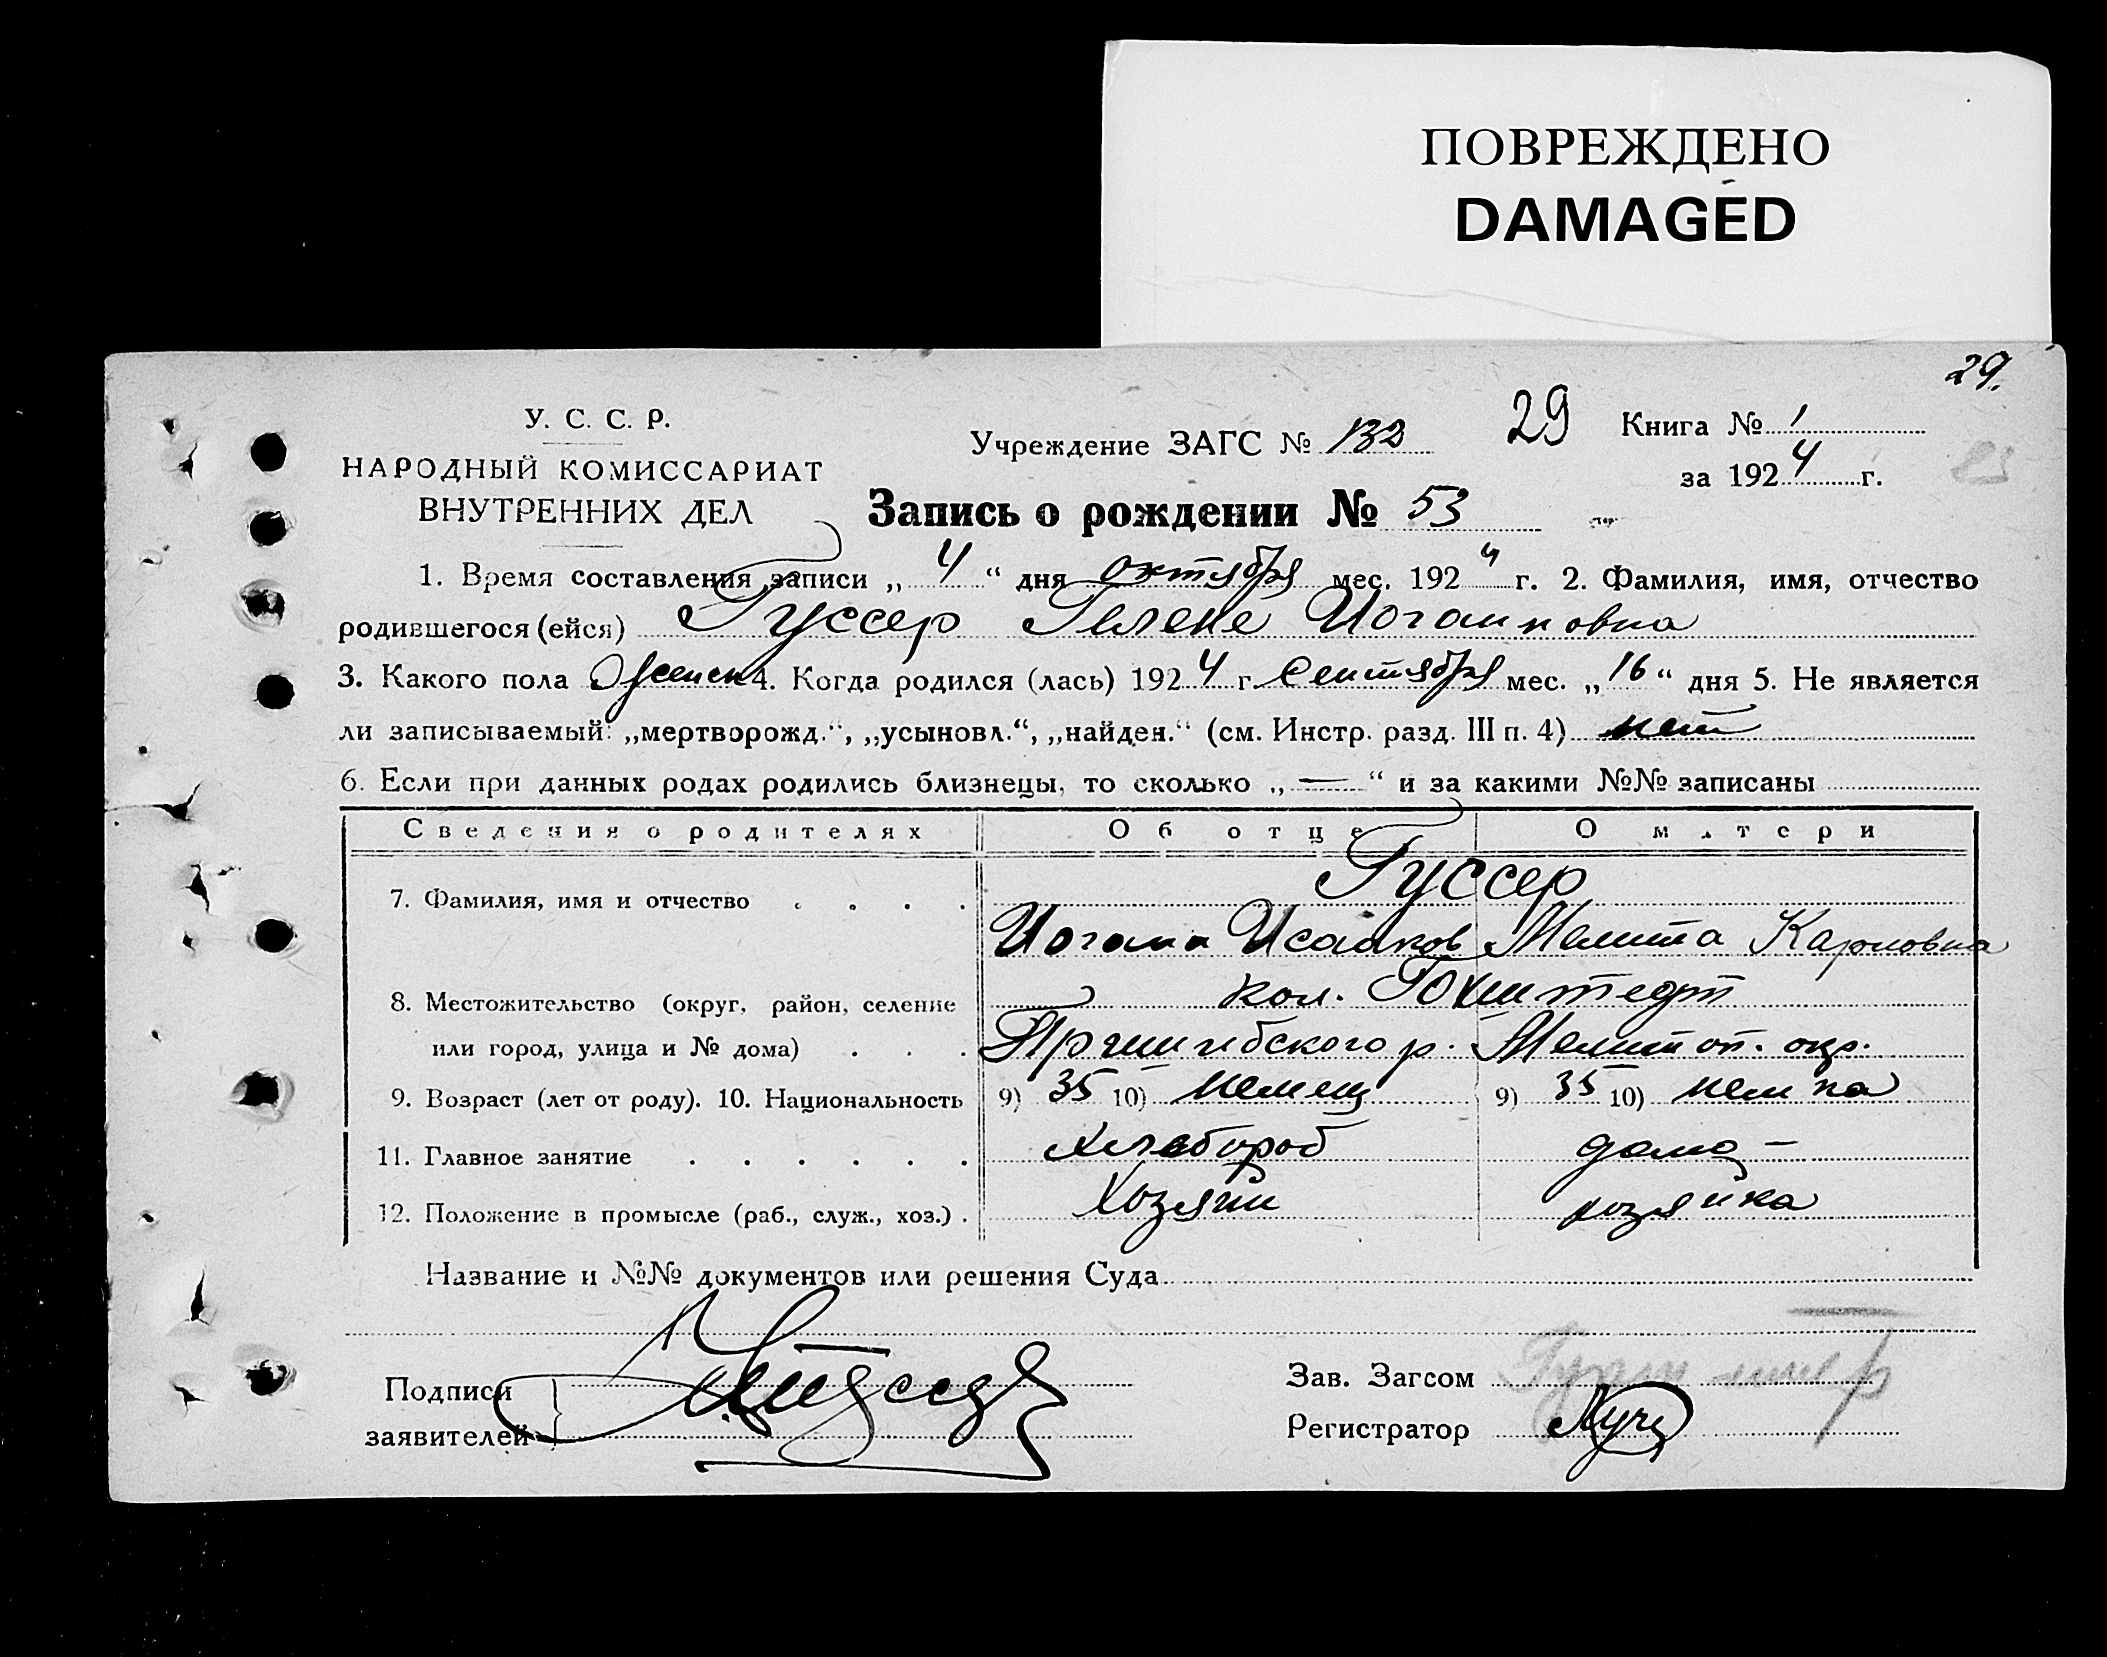 ПОВРЕЖДЕНО
DAMAGED
29.
У. С. С. Р.
НАРОДНЫЙ КОМИССАРИАТ
ВНУТРЕННИХ ДЕЛ
Учреждение ЗАГС № 132
29
Книга № 1
за 1924 г.
Запись о рождении № 53
1. Время составления записи „ 4 “ дня октября мес. 1924 г. 2. Фамилия, имя, отчество
родившегося (ейся) Гуссер Гелене Иогановна
3. Какого пола женск 4. Когда родился (лась) 1924 г. Сентября мес. „ 16 “ дня 5. Не является
ли записываемый: „мертворожд.“, „усыновл.“, „найден.“ (см. Инстр. разд. III п. 4) нет
6. Если при данных родах родились близнецы, то сколько „ — “ и за какими №№ записаны
Сведения о родителях Об отце О матери
7. Фамилия, имя и отчество . . . . Гуссер
Иоган Исааков Мелита Карловна
8. Местожительство (округ, район, селение кол. Гохштедт
или город, улица и № дома) . . . Пришибского р. Мелитоп. окр.
9. Возраст (лет от роду). 10. Национальность 9) 35 10) немец 9) 35 10) немка
11. Главное занятие . . . . . . Хлебороб домо-
12. Положение в промысле (раб., служ., хоз.) . Хозяин хозяйка
Название и №№ документов или решения Суда
Подписи
заявителей
Зав. Загсом
Регистратор